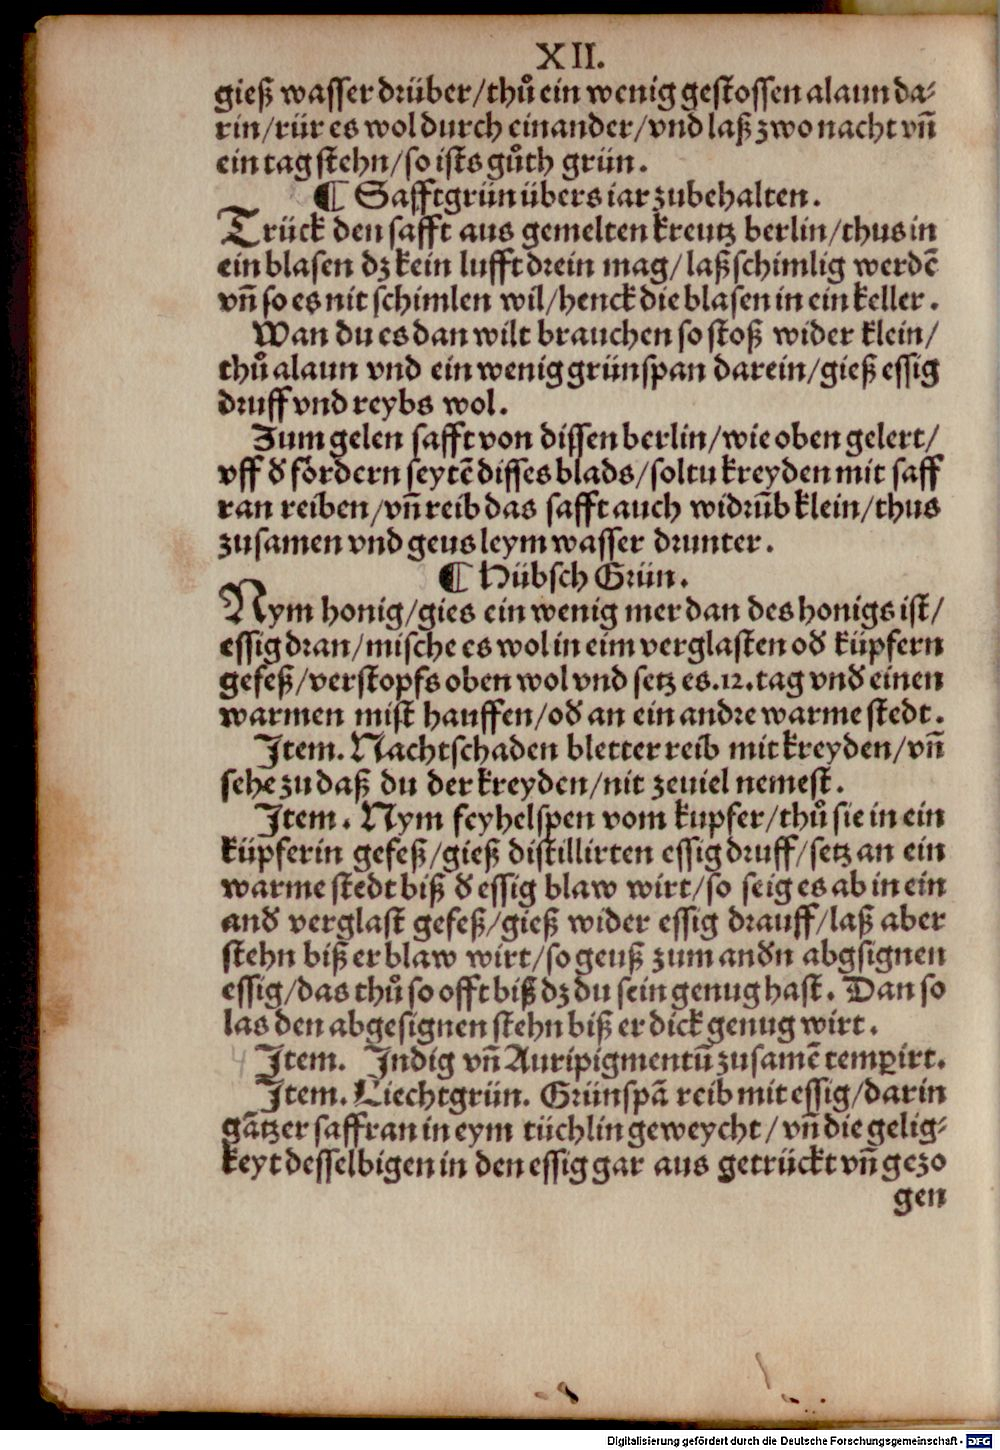 XII.
gieß wasser drüber/thů ein wenig gestossen alaun da⸗
rin/rür es wol durch einander/vnd laß zwo nacht vñ
ein tag stehn/so ists gůth grün.
¶ Safftgrün übers iar zubehalten.
Trück den safft aus gemelten kreutz berlin/thus in
ein blasen dz kein lufft drein mag/laß schimlig werdẽ
vñ so es nit schimlen wil/henck die blasen in ein keller.
Wan du es dan wilt brauchen so stoß wider klein/
thů alaun vnd ein wenig grünspan darein/gieß essig
druff vnd reybs wol.
Zum gelen safft von dissen berlin/wie oben gelert/
vff d fördern seytẽ disses blads/soltu kreyden mit saff
ran reiben/vñ reib das safft auch widrũb klein/thus
zusamen vnd geus leym wasser drunter.
¶ Hübsch Grün.
Nym honig/gies ein wenig mer dan des honigs ist/
essig dran/mische es wol in eim verglasten od küpfern
gefeß/verstopfs oben wol vnd setz es .12. tag vnd einen
warmen mist hauffen/od an ein andre warme stedt.
Item. Nachtschaden bletter reib mit kreyden/vñ
sehe zu daß du der kreyden/nit zeuiel nemest.
Item. Nym feyhelspen vom kupfer/thů sie in ein
küpferin gefeß/gieß distillirten essig druff/setz an ein
warme stedt biß d essig blaw wirt/so seig es ab in ein
and verglast gefeß/gieß wider essig drauff/laß aber
stehn biß er blaw wirt/so geuß zum andn abgsignen
essig/das thů so offt biß dz du sein genug hast. Dan so
las den abgesignen stehn biß er dick genug wirt.
Item. Indig vñ Auripigmentũ zusamẽ temꝑirt.
Item. Liechtgrün. Grünspã reib mit essig/darin
gãtzer saffran in eym tüchlin geweycht/vñ die gelig⸗
keyt desselbigen in den essig gar aus getrückt vñ gezo
gen
Digitalisierung gefördert durch die Deutsche Forschungsgemeinschaft - DFG